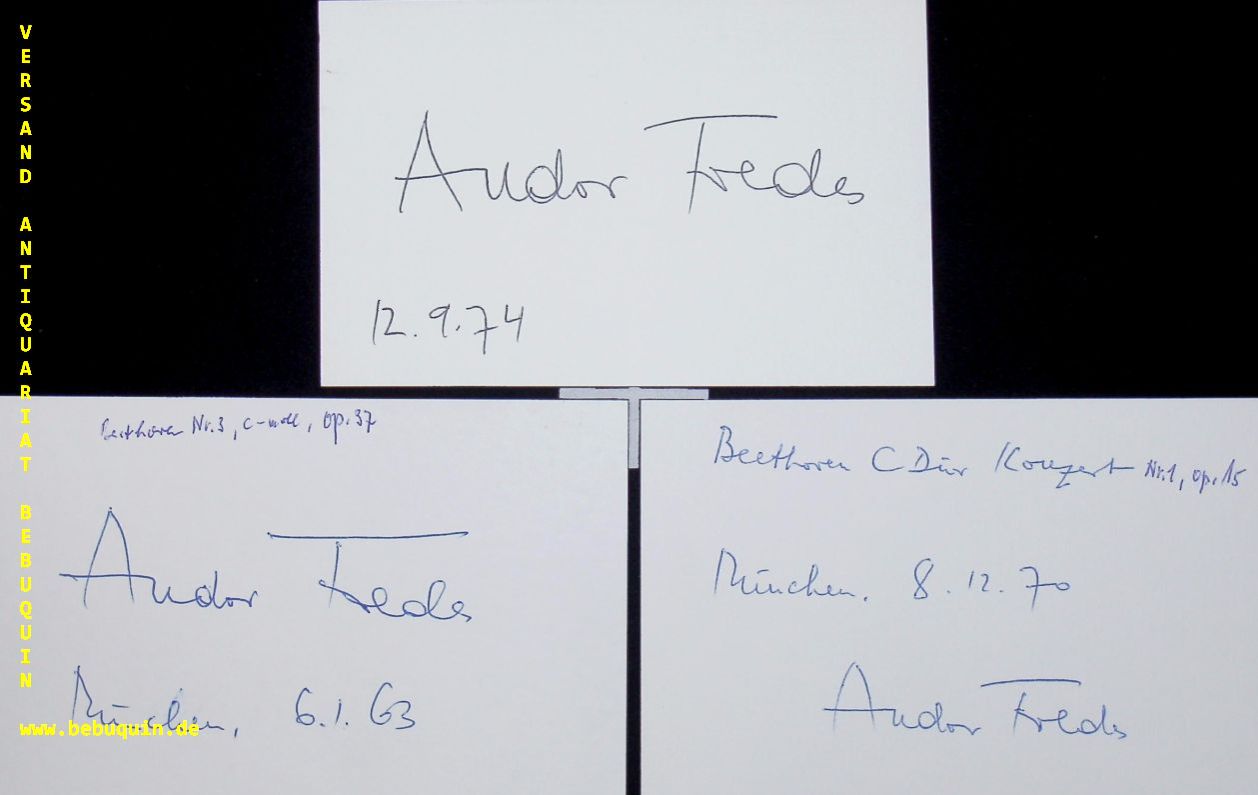 VERSAND ANTIQUARIAT BEBUQUIN
www.bebuquin.de
Andor Foldes
12.9.74
Beethoven Nr.3, c-moll, op.37
Andor Foldes
München, 6.1.63
Beethoven C Dur Konzert Nr.1, op.15
München, 8.12.70
Andor Foldes